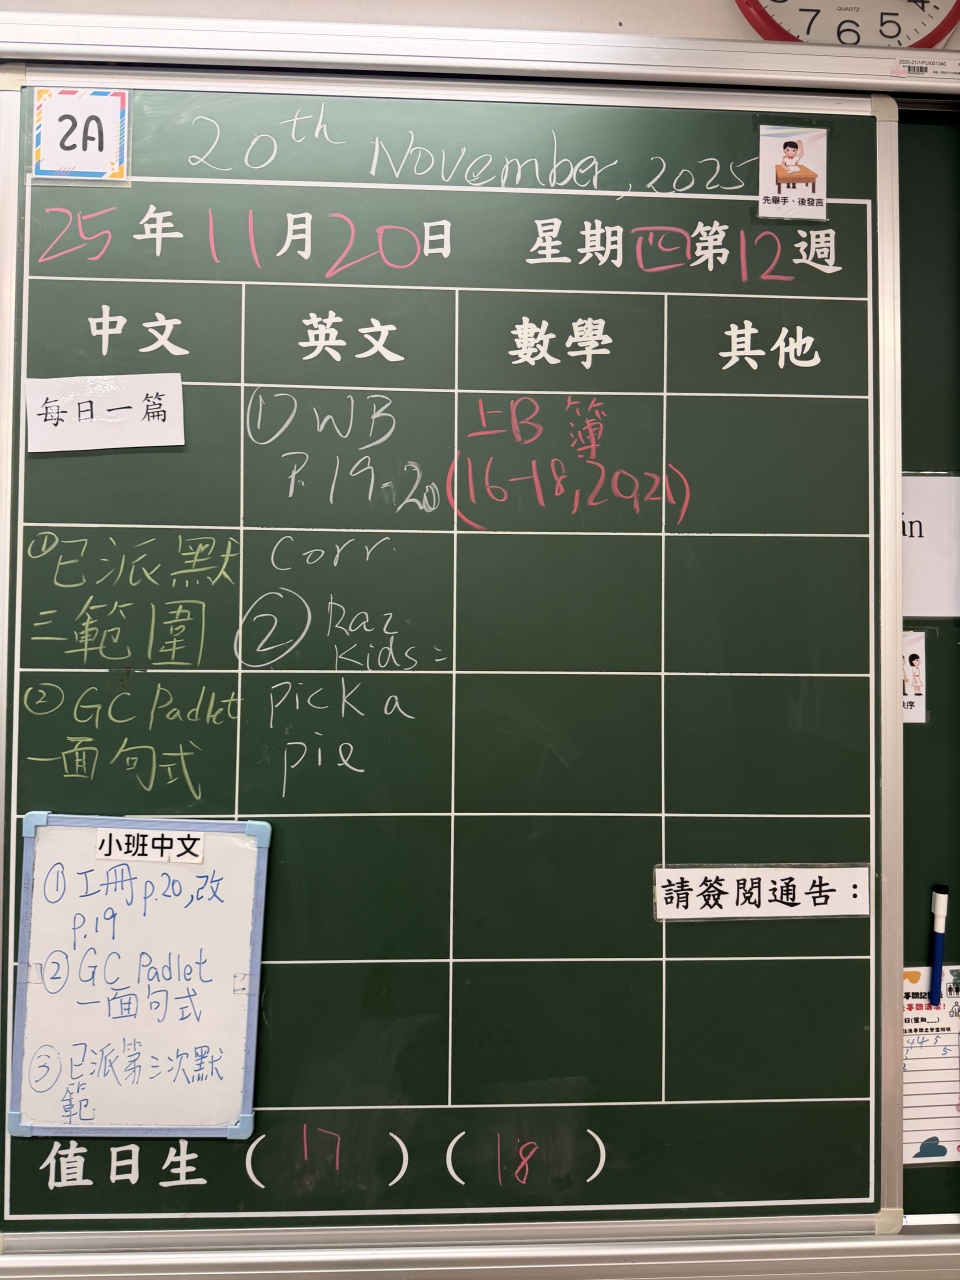 QUARTZ
7 6 5 4
2A
20th November, 2025
先舉手、後發言
25年11月20日 星期四第12週
中文 英文 數學 其他
每日一篇
① WB
P.19-20
corr.
② Raz
Kids:
Pick a
pie
上B簿
(16-18,20,21)
①已派默
三範圍
② GC Padlet
一面句式
小班中文
① 工冊 p.20,改
p.19
② GC Padlet
一面句式
③ 已派第三次默
範
請簽閱通告：
值日生 (17) (18)
án